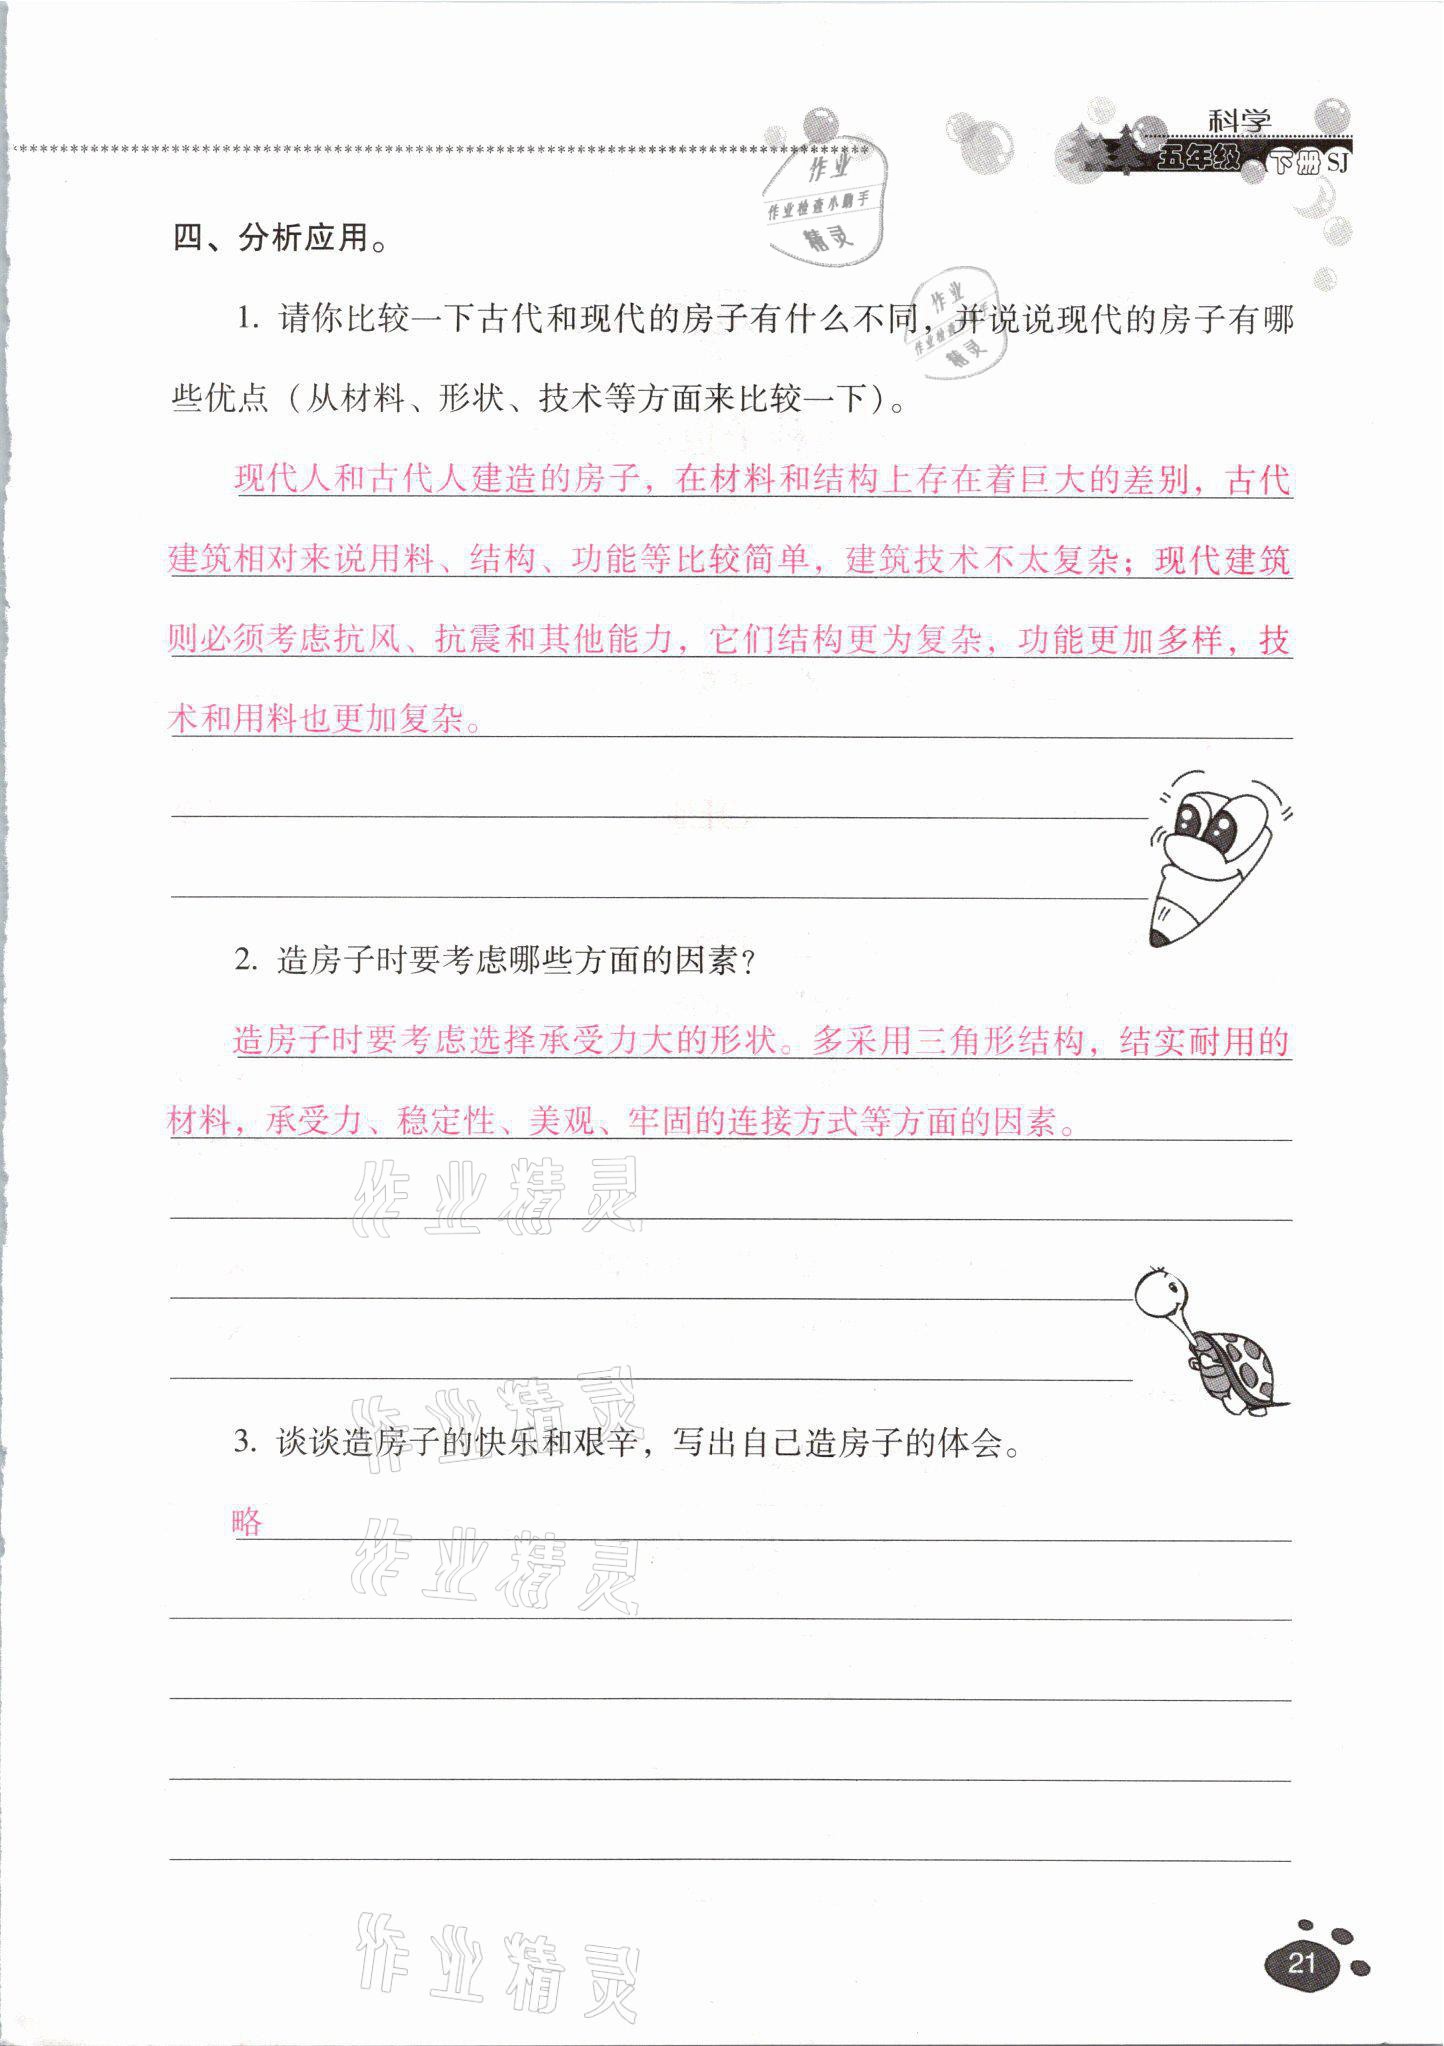 科学
五年级 下册 SJ
作业
作业检查小助手
精灵
四、分析应用。
作业
作业检查小助手
精灵
1. 请你比较一下古代和现代的房子有什么不同，并说说现代的房子有哪
些优点（从材料、形状、技术等方面来比较一下）。
现代人和古代人建造的房子，在材料和结构上存在着巨大的差别，古代
建筑相对来说用料、结构、功能等比较简单，建筑技术不太复杂；现代建筑
则必须考虑抗风、抗震和其他能力，它们结构更为复杂，功能更加多样，技
术和用料也更加复杂。
2. 造房子时要考虑哪些方面的因素？
造房子时要考虑选择承受力大的形状。多采用三角形结构，结实耐用的
材料，承受力、稳定性、美观、牢固的连接方式等方面的因素。
作业精灵
作业精灵
3. 谈谈造房子的快乐和艰辛，写出自己造房子的体会。
略
作业精灵
作业精灵
21